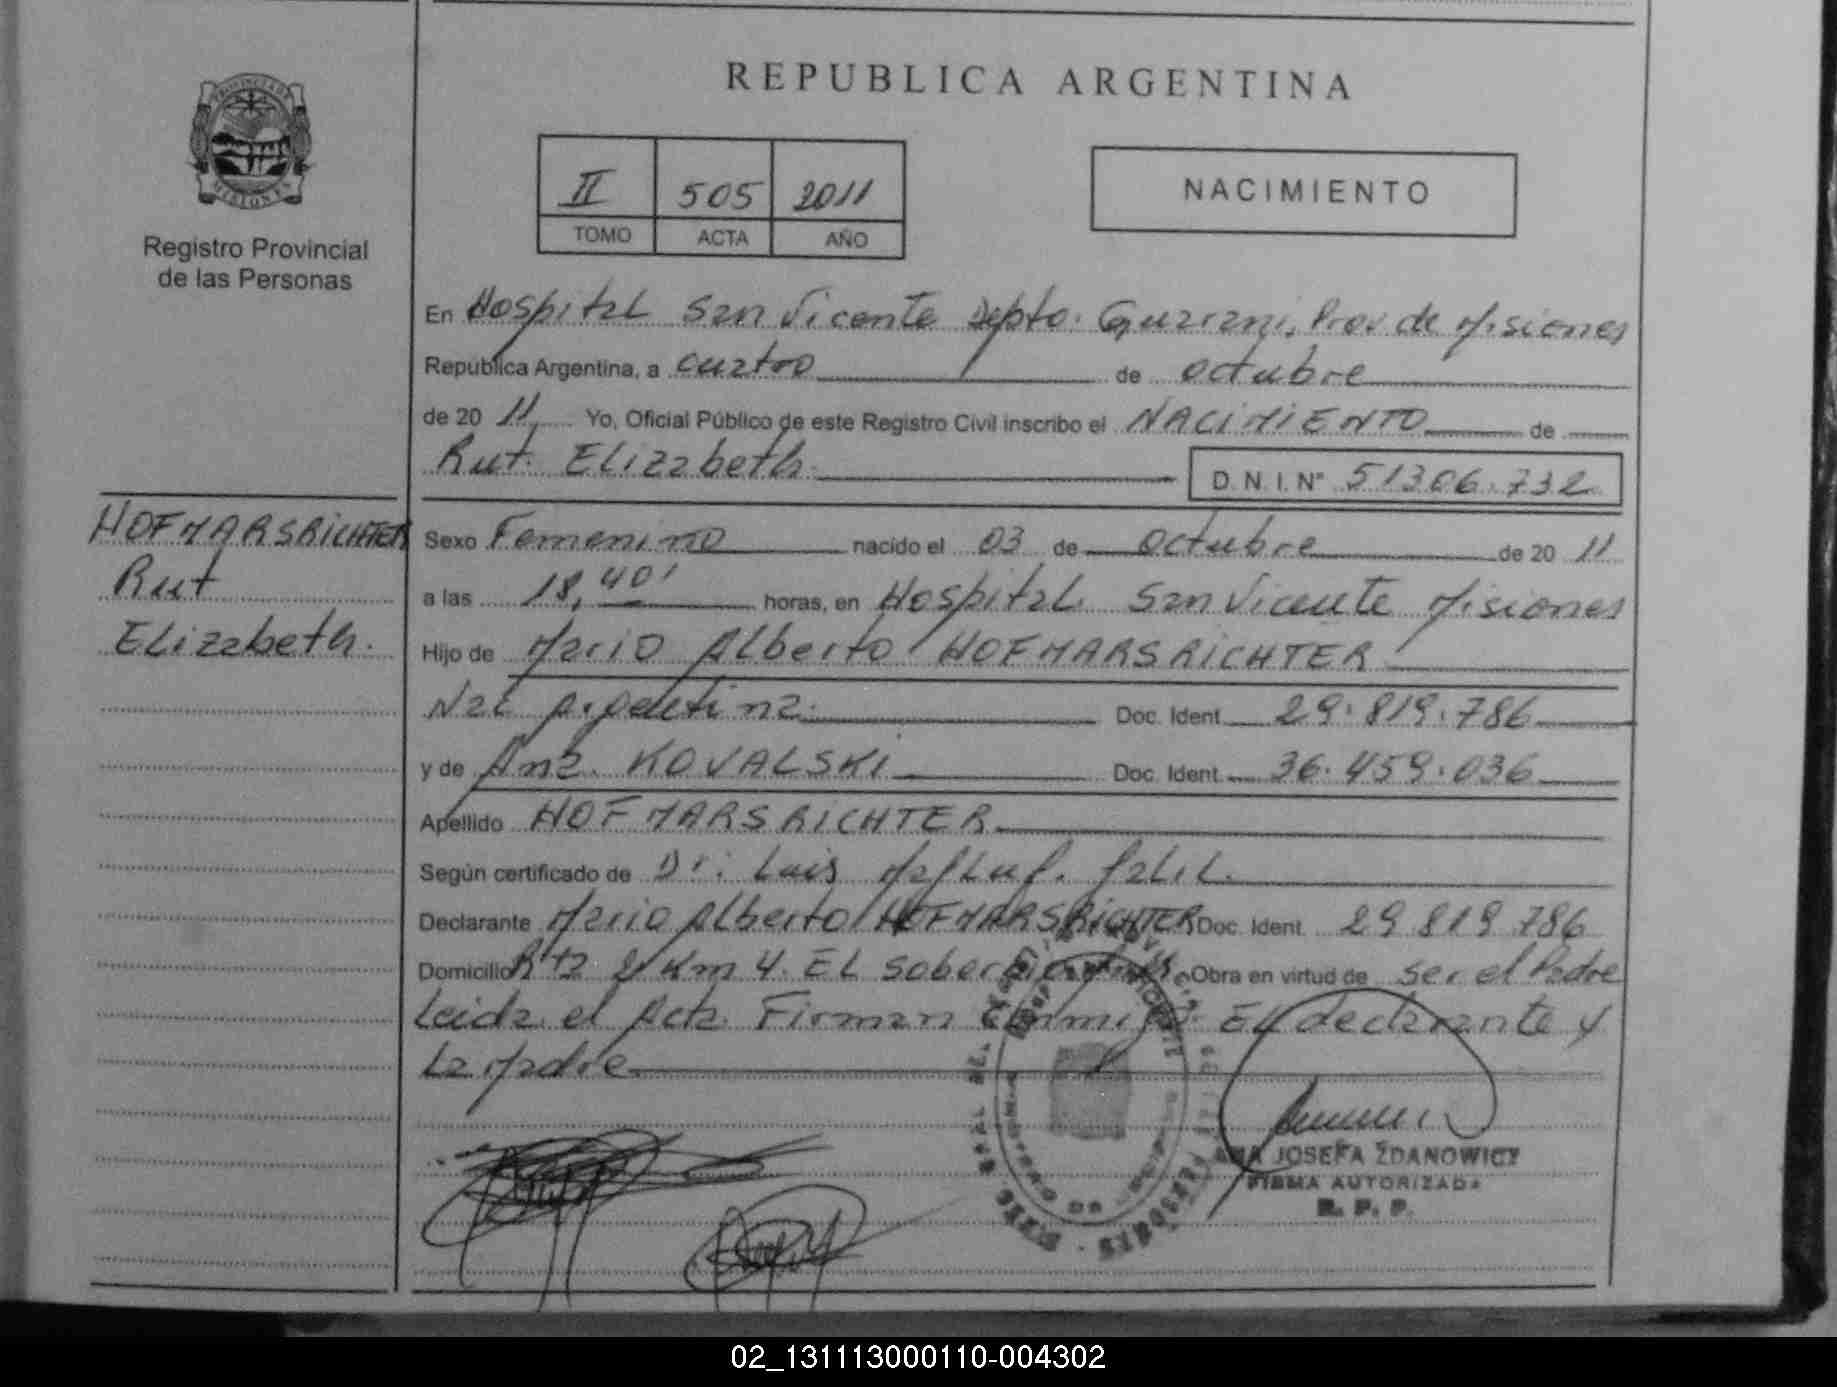 REPUBLICA ARGENTINA
PROVINCIA DE
MISIONES
Registro Provincial
de las Personas
II 505 2011
TOMO ACTA AÑO
NACIMIENTO
En Hospital San Vicente Depto. Guarani, Prov de Misiones
República Argentina, a cuatro de octubre
de 20 11 Yo, Oficial Público de este Registro Civil inscribo el NACIMIENTO de
Rut Elizabeth.
D. N. I. N° 51306.732
HOFMARSRICHTER
Rut
Elizabeth.
Sexo Femenino nacido el 03 de octubre de 20 11
a las 18,40' horas, en Hospital San Vicente Misiones
Hijo de Mario Alberto HOFMARSRICHTER
Nac Argentina Doc. Ident. 29.819.786
y de Ana KOVALSKI Doc. Ident. 36.459.036
Apellido HOFMARSRICHTER
Según certificado de Dr. Luis
Declarante Mario Alberto HOFMARSRICHTER Doc. Ident. 29.819.786
Domicilio Rta 2 Km 4. El Soberbio Obra en virtud de ser el Padre
Leida el Acta Firman El declarante y
La Madre
ANA JOSEFA ZDANOWICZ
FIRMA AUTORIZADA
R. P. P.
02_131113000110-004302